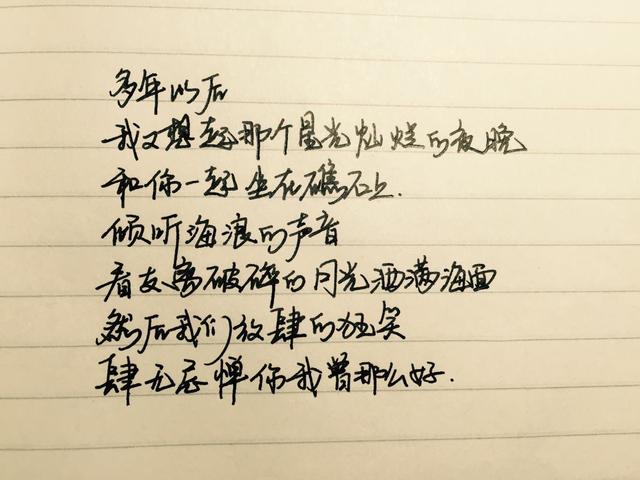 多年以后
我又想起那个星光灿烂的夜晚
和你一起坐在礁石上.
倾听海浪的声音
看支离破碎的月光洒满海面
然后我们放肆的狂笑
肆无忌惮你我曾那么好.